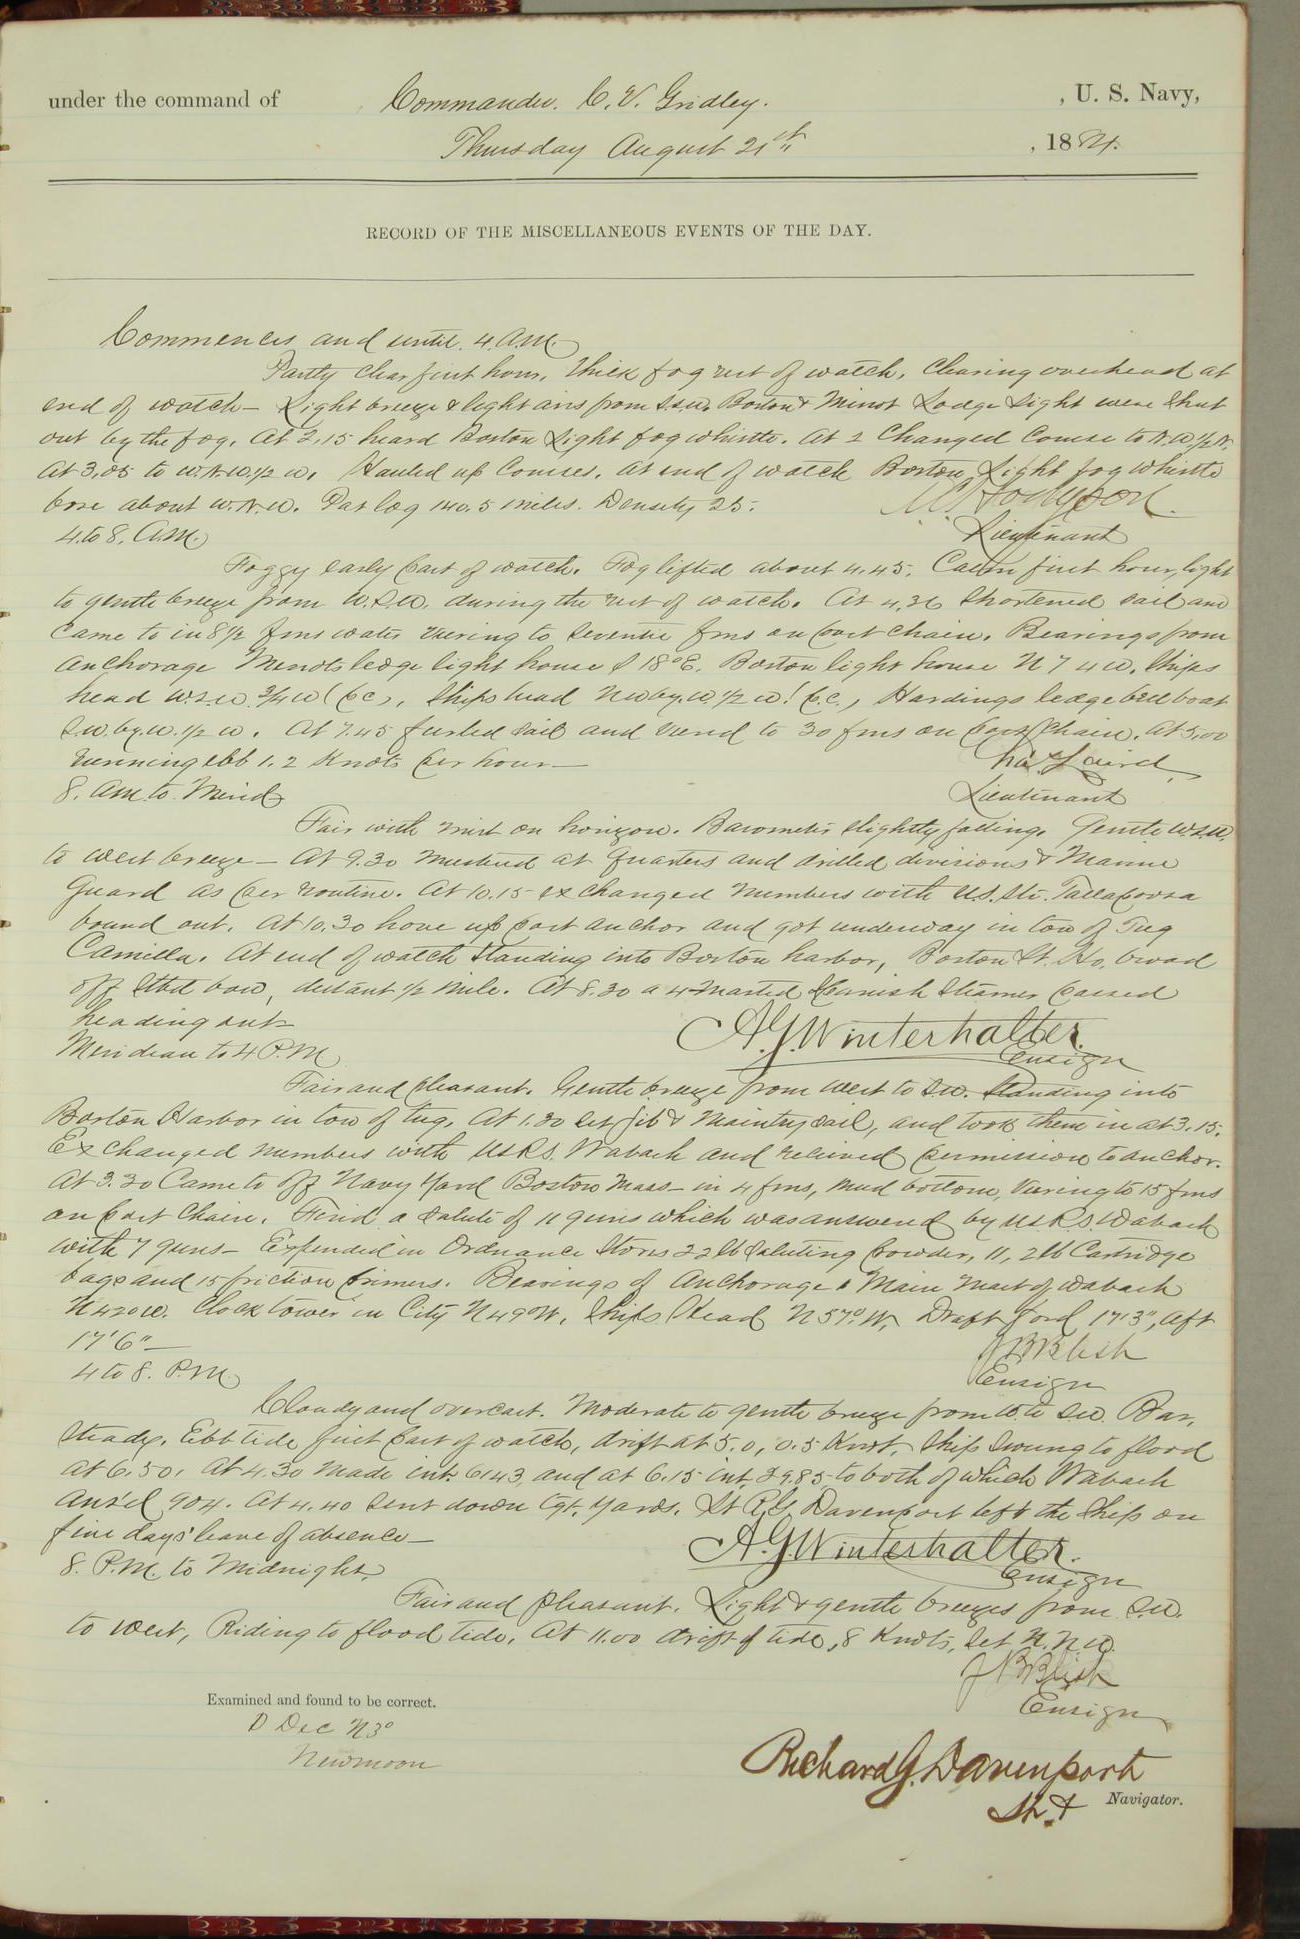 under the command of Commander. C. V. Gridley. , U. S. Navy,
Thursday August 21st , 1884.
RECORD OF THE MISCELLANEOUS EVENTS OF THE DAY.
Commences and until 4 A.M.
Partly clear first hour. Thick fog rest of watch. Clearing overhead at
end of watch— Light breeze & light airs from S.S.W. Boston & Minot Ledge Light were shut
out by the fog. At 2.15 heard Boston Light fog whistle. At 2 Changed Course to N.W. 1/2 N.
At 3.05 to W.N.W. 1/2 W. Hauled up Courses. At end of watch Boston Light fog whistle
bore about W.N.W. Pat log 140.5 miles. Density 25.
Lieutenant
4 to 8. A.M.
Foggy early part of watch. Fog lifted about 4.45. Calm first hour, light
to gentle breeze from W.S.W. during the rest of watch. At 4.36 Shortened sail and
Came to in 8 1/2 fms water veering to seventy fms on port chain. Bearings from
anchorage Minots ledge light house S 18° E. Boston light house N 74 W. Ships
head W.S.W. 3/4 W (p.c.), Ships head N.W. by W. 1/2 W. (p.c.), Hardings ledge bell boat
S.W. by W. 1/2 W. At 7.45 furled sail and veered to 30 fms on port chain. At 5.00
running ebb 1.2 Knots per hour—
Chas Laird
Lieutenant
8. A.M. to Merid
Fair with mist on horizon. Barometer slightly falling. Gentle W.S.W.
to west breeze— At 9.30 mustered at quarters and drilled divisions & Marine
Guard as per routine. At 10.15 exchanged numbers with U.S. Str. Tallapoosa
bound out. At 10.30 hove up port anchor and got underway in tow of Tug
Camilla. At end of watch standing into Boston harbor, Boston Lt. Ho. broad
off Stbd bow, distant 1/2 mile. At 8.30 a 4 masted Steamer passed
heading out—
A.G. Winterhalter.
Ensign
Meridian to 4 P.M.
Fair and pleasant. Gentle breeze from west to S.W. Standing into
Boston Harbor in tow of tug. At 1.30 set jib & Main trysail, and took them in at 3.15.
Exchanged numbers with U.S.R.S. Wabash and received permission to anchor.
At 3.30 Came to off Navy Yard Boston Mass— in 4 fms, mud bottom, Veering to 15 fms
on port Chain. Fired a salute of 11 guns which was answered by U.S.R.S. Wabash
with 7 guns— Expended in Ordnance Stores 22 lb Saluting powder, 11, 2 lb Cartridge
bags and 15 friction primers. Bearings of Anchorage: Main Mast of Wabash
N 42° W. Clock tower in City N 49° W, Ships Head N 57° W. Draft Ford 17'3", Aft
17'6"—
J B Blish
Ensign
4 to 8. P.M.
Cloudy and overcast. Moderate to gentle breeze from W. to S.W. Bar.
steady. Ebb tide first part of watch, drift at 5.0, 0.5 Knot. Ship swung to flood
at 6.50. At 4.30 made int. 6143, and at 6.15 int. 2985, to both of which Wabash
Ans'd 904. At 4.40 sent down tgt. yards. Lt R.G. Davenport left the Ship on
five days' leave of absence—
A.G. Winterhalter.
Ensign
8. P.M. to Midnight.
Fair and pleasant. Light & gentle breezes from S.W.
to west, Riding to flood tide. At 11.00 drift of tide .8 Knots, set N.N.W.
J B Blish
Ensign
Examined and found to be correct.
D Dec N 3°
New moon
Richard G. Davenport
Lt.
Navigator.